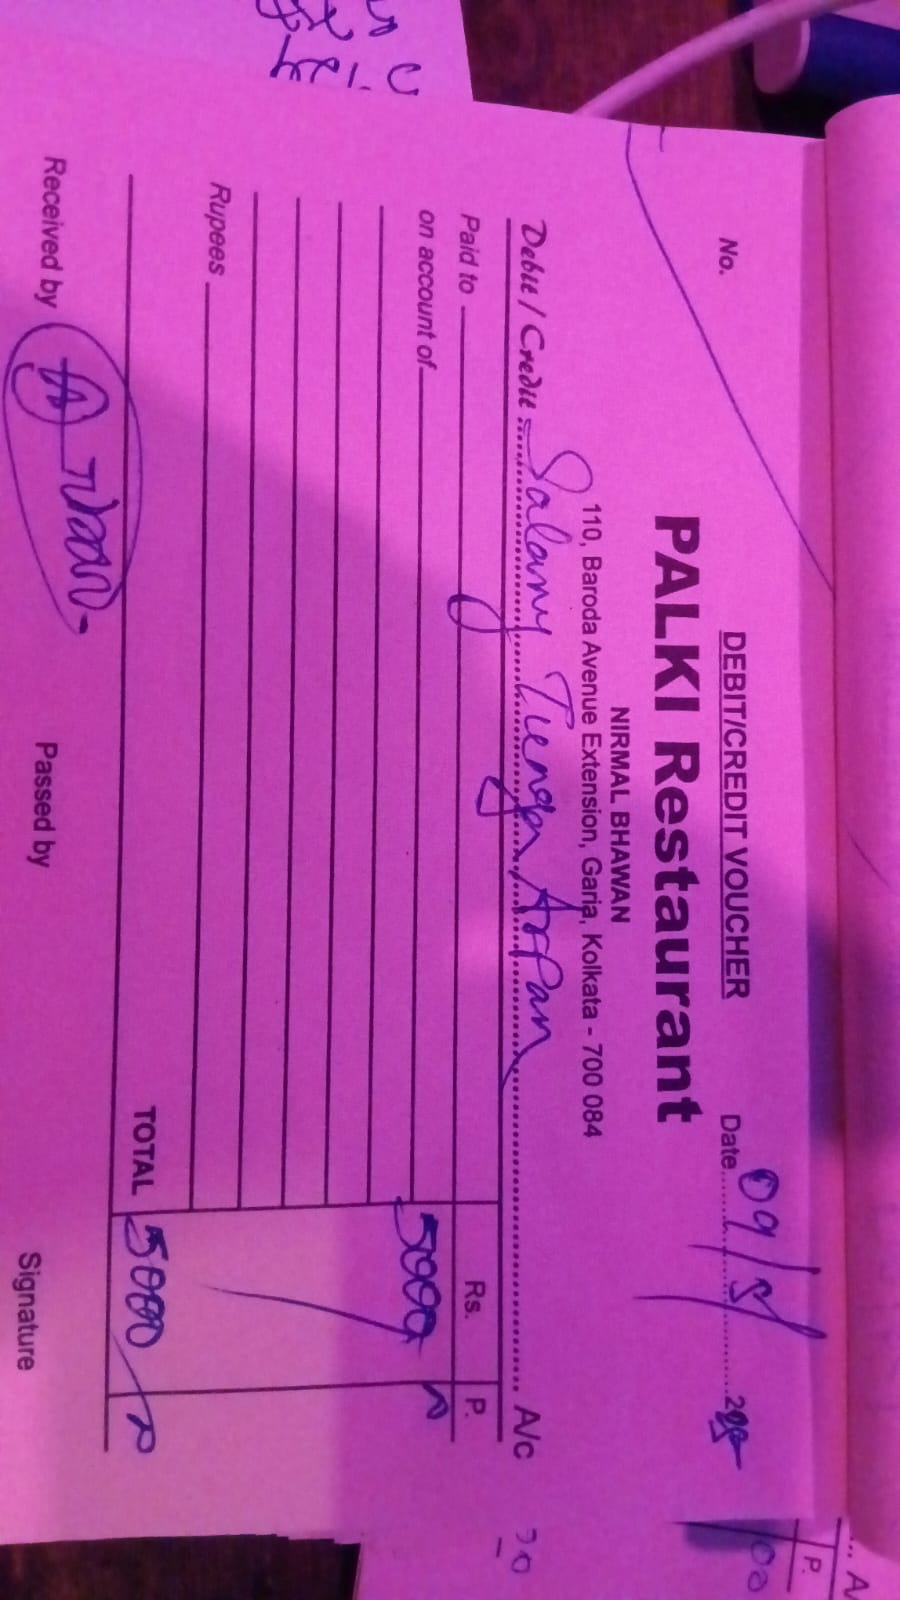 DEBIT/CREDIT VOUCHER
No. Date 09/5/
PALKI Restaurant
NIRMAL BHAWAN
110, Baroda Avenue Extension, Garia, Kolkata - 700 084
Debit / Credit Salany Arpan A/c
Paid to Rs. P.
on account of 5000
Rupees
TOTAL 5000
Received by Passed by Signature